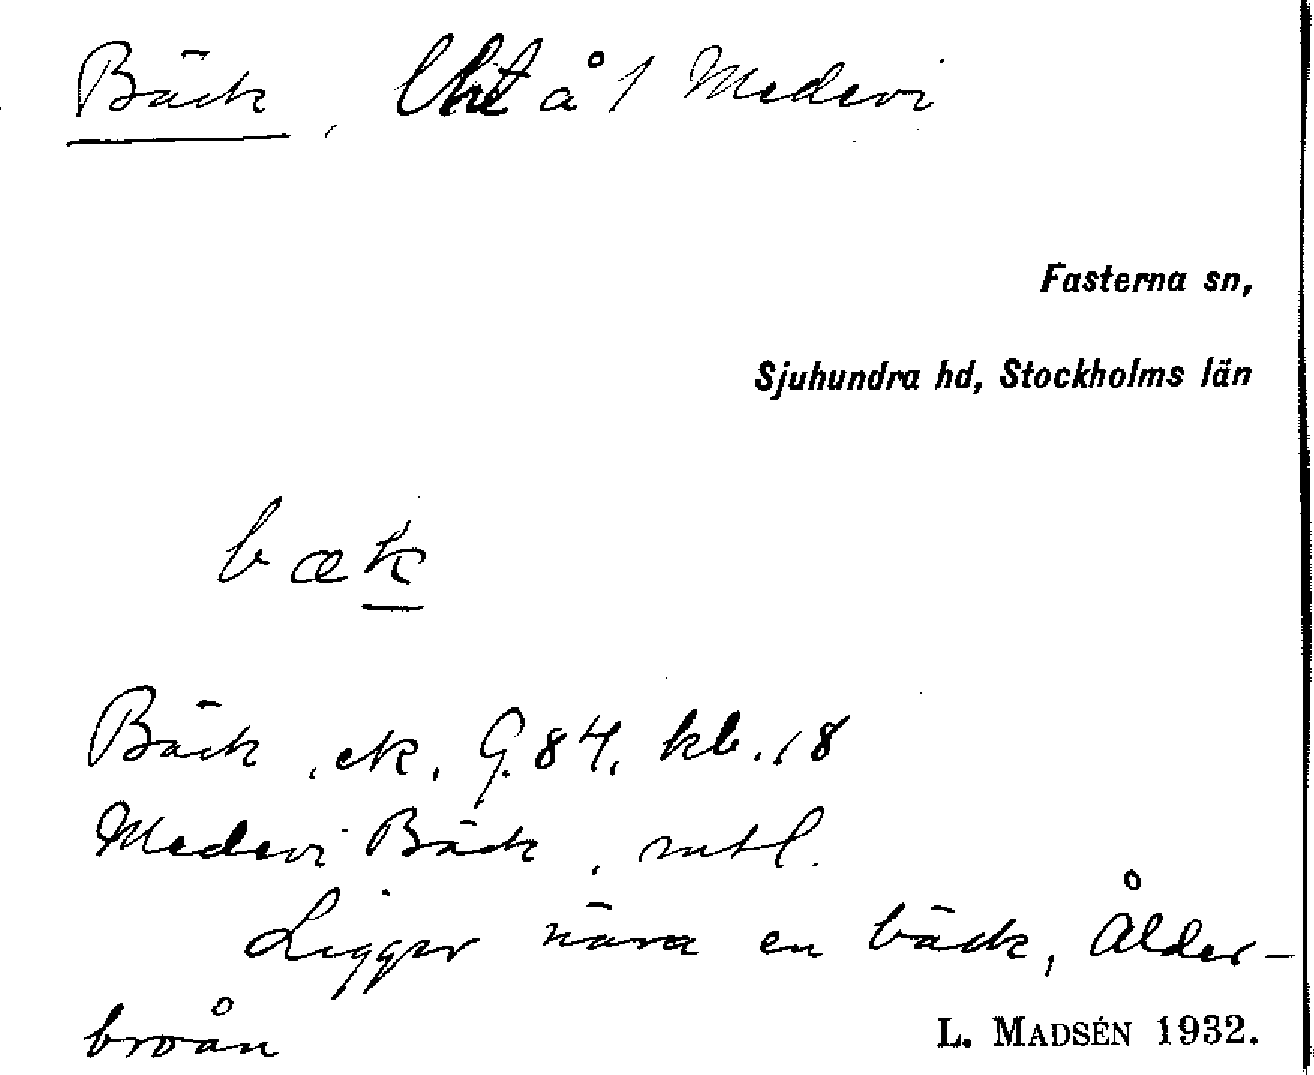 Bäck, lht å 1 Medevi
Fasterna sn,
Sjuhundra hd, Stockholms län
bæk
Bäck, ek. G. 84, kb. 18
Medevi Bäck, mtl.
Ligger nära en bäck, Ålder-
broån
L. MADSÉN 1932.